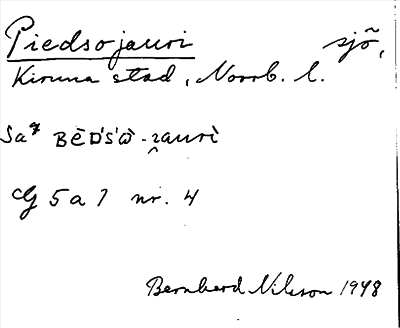 Piedsojauri sjö,
Kiruna stad, Norrb. l.
BĒD́S'ω̄-ɀaurì
5 a 7 nr. 4
Bernhard Nilsson 1948